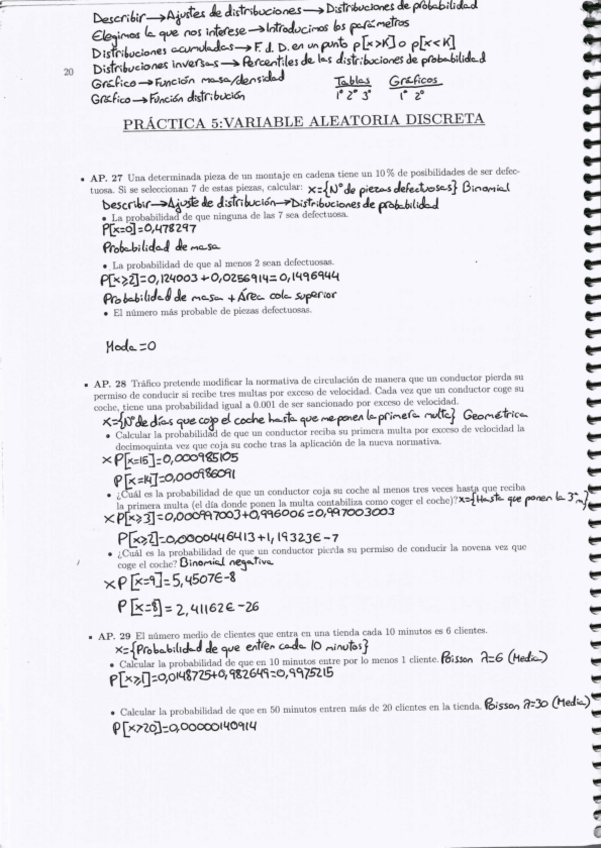 Describir→Ajustes de distribuciones→Distribuciones de probabilidad
Elegimos la que nos interese→Introducimos los parámetros
Distribuciones acumuladas→F.d.D. en un punto p[x>K] o p[x<K]
20
Distribuciones inversas→Percentiles de las distribuciones de probabilidad
Gráfico→Función masa/densidad Tablas Gráficos
Gráfico→Función distribución 1º 2º 3º 1º 2º
PRÁCTICA 5:VARIABLE ALEATORIA DISCRETA
• AP. 27 Una determinada pieza de un montaje en cadena tiene un 10% de posibilidades de ser defec-
tuosa. Si se seleccionan 7 de estas piezas, calcular: x={Nº de piezas defectuosas} Binomial
Describir→Ajuste de distribución→Distribuciones de probabilidad
• La probabilidad de que ninguna de las 7 sea defectuosa.
P[x=0]=0,478297
Probabilidad de masa
• La probabilidad de que al menos 2 sean defectuosas.
P[x≥2]=0,124003+0,0256914=0,1496944
Probabilidad de masa + Área cola superior
• El número más probable de piezas defectuosas.
Moda=0
• AP. 28 Tráfico pretende modificar la normativa de circulación de manera que un conductor pierda su
permiso de conducir si recibe tres multas por exceso de velocidad. Cada vez que un conductor coge su
coche, tiene una probabilidad igual a 0.001 de ser sancionado por exceso de velocidad.
x={Nº de días que cojo el coche hasta que me ponen la primera multa} Geométrica
• Calcular la probabilidad de que un conductor reciba su primera multa por exceso de velocidad la
decimoquinta vez que coja su coche tras la aplicación de la nueva normativa.
× P[x=15]=0,000985105
P[x=14]=0,000986091
• ¿Cuál es la probabilidad de que un conductor coja su coche al menos tres veces hasta que reciba
la primera multa (el día donde ponen la multa contabiliza como coger el coche)? x={Hasta que ponen la 3ª m}
× P[x≥3]=0,000997003+0,996006=0,997003003
P[x≥2]=0,0000446413+1,19323E-7
• ¿Cuál es la probabilidad de que un conductor pierda su permiso de conducir la novena vez que
coge el coche? Binomial negativa
× P[x=9]=5,4507E-8
P[x=8]=2,41162E-26
• AP. 29 El número medio de clientes que entra en una tienda cada 10 minutos es 6 clientes.
x={Probabilidad de que entren cada 10 minutos}
• Calcular la probabilidad de que en 10 minutos entre por lo menos 1 cliente. Poisson λ=6 (Media)
P[x≥1]=0,0148725+0,982649=0,9975215
• Calcular la probabilidad de que en 50 minutos entren más de 20 clientes en la tienda. Poisson λ=30 (Media)
P[x>20]=0,00000140914